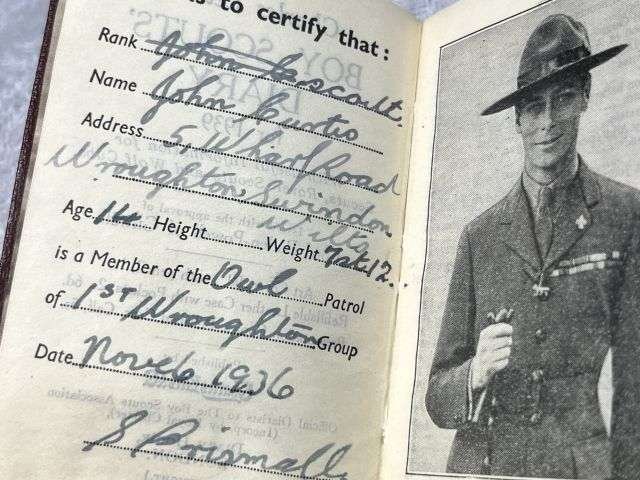 is to certify that:
Rank John a scout.
Name John Curtis
Address 5, Wharf Road
Wroughton Swindon
Wilts
Age 14 Height Weight 7st 12.
is a Member of the Owl Patrol
of 1ST Wroughton Group
Date Nov 6 1936